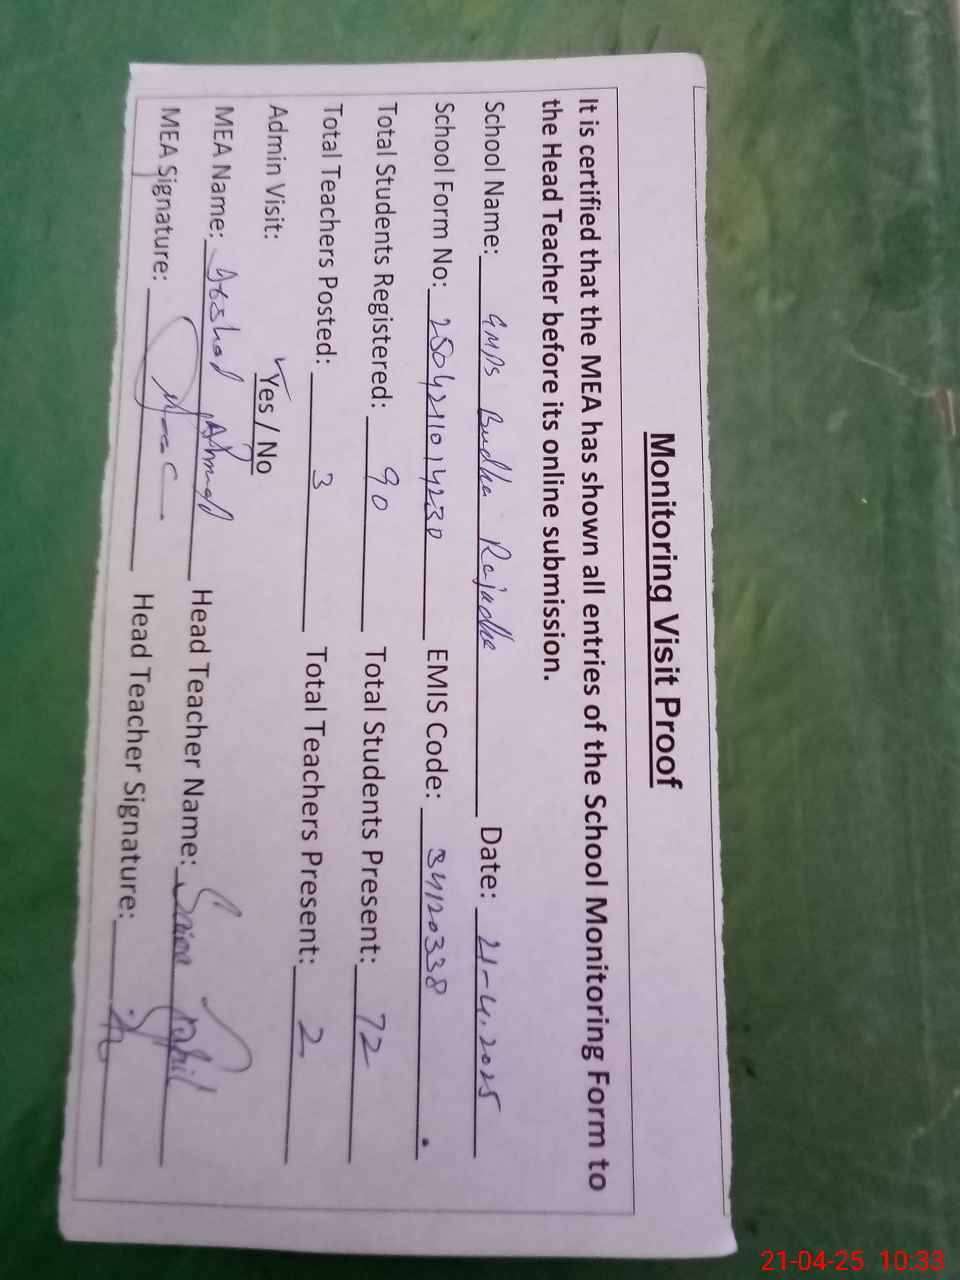 Monitoring Visit Proof
It is certified that the MEA has shown all entries of the School Monitoring Form to
the Head Teacher before its online submission.
School Name: GMPS Budha Rajada Date: 21-4.2025
School Form No: 2504211014230 EMIS Code: 34120338
Total Students Registered: 90 Total Students Present: 72
Total Teachers Posted: 3 Total Teachers Present: 2
Admin Visit: Yes / No
MEA Name: Ahmad Head Teacher Name:
MEA Signature: Head Teacher Signature:
21-04-25 10:33